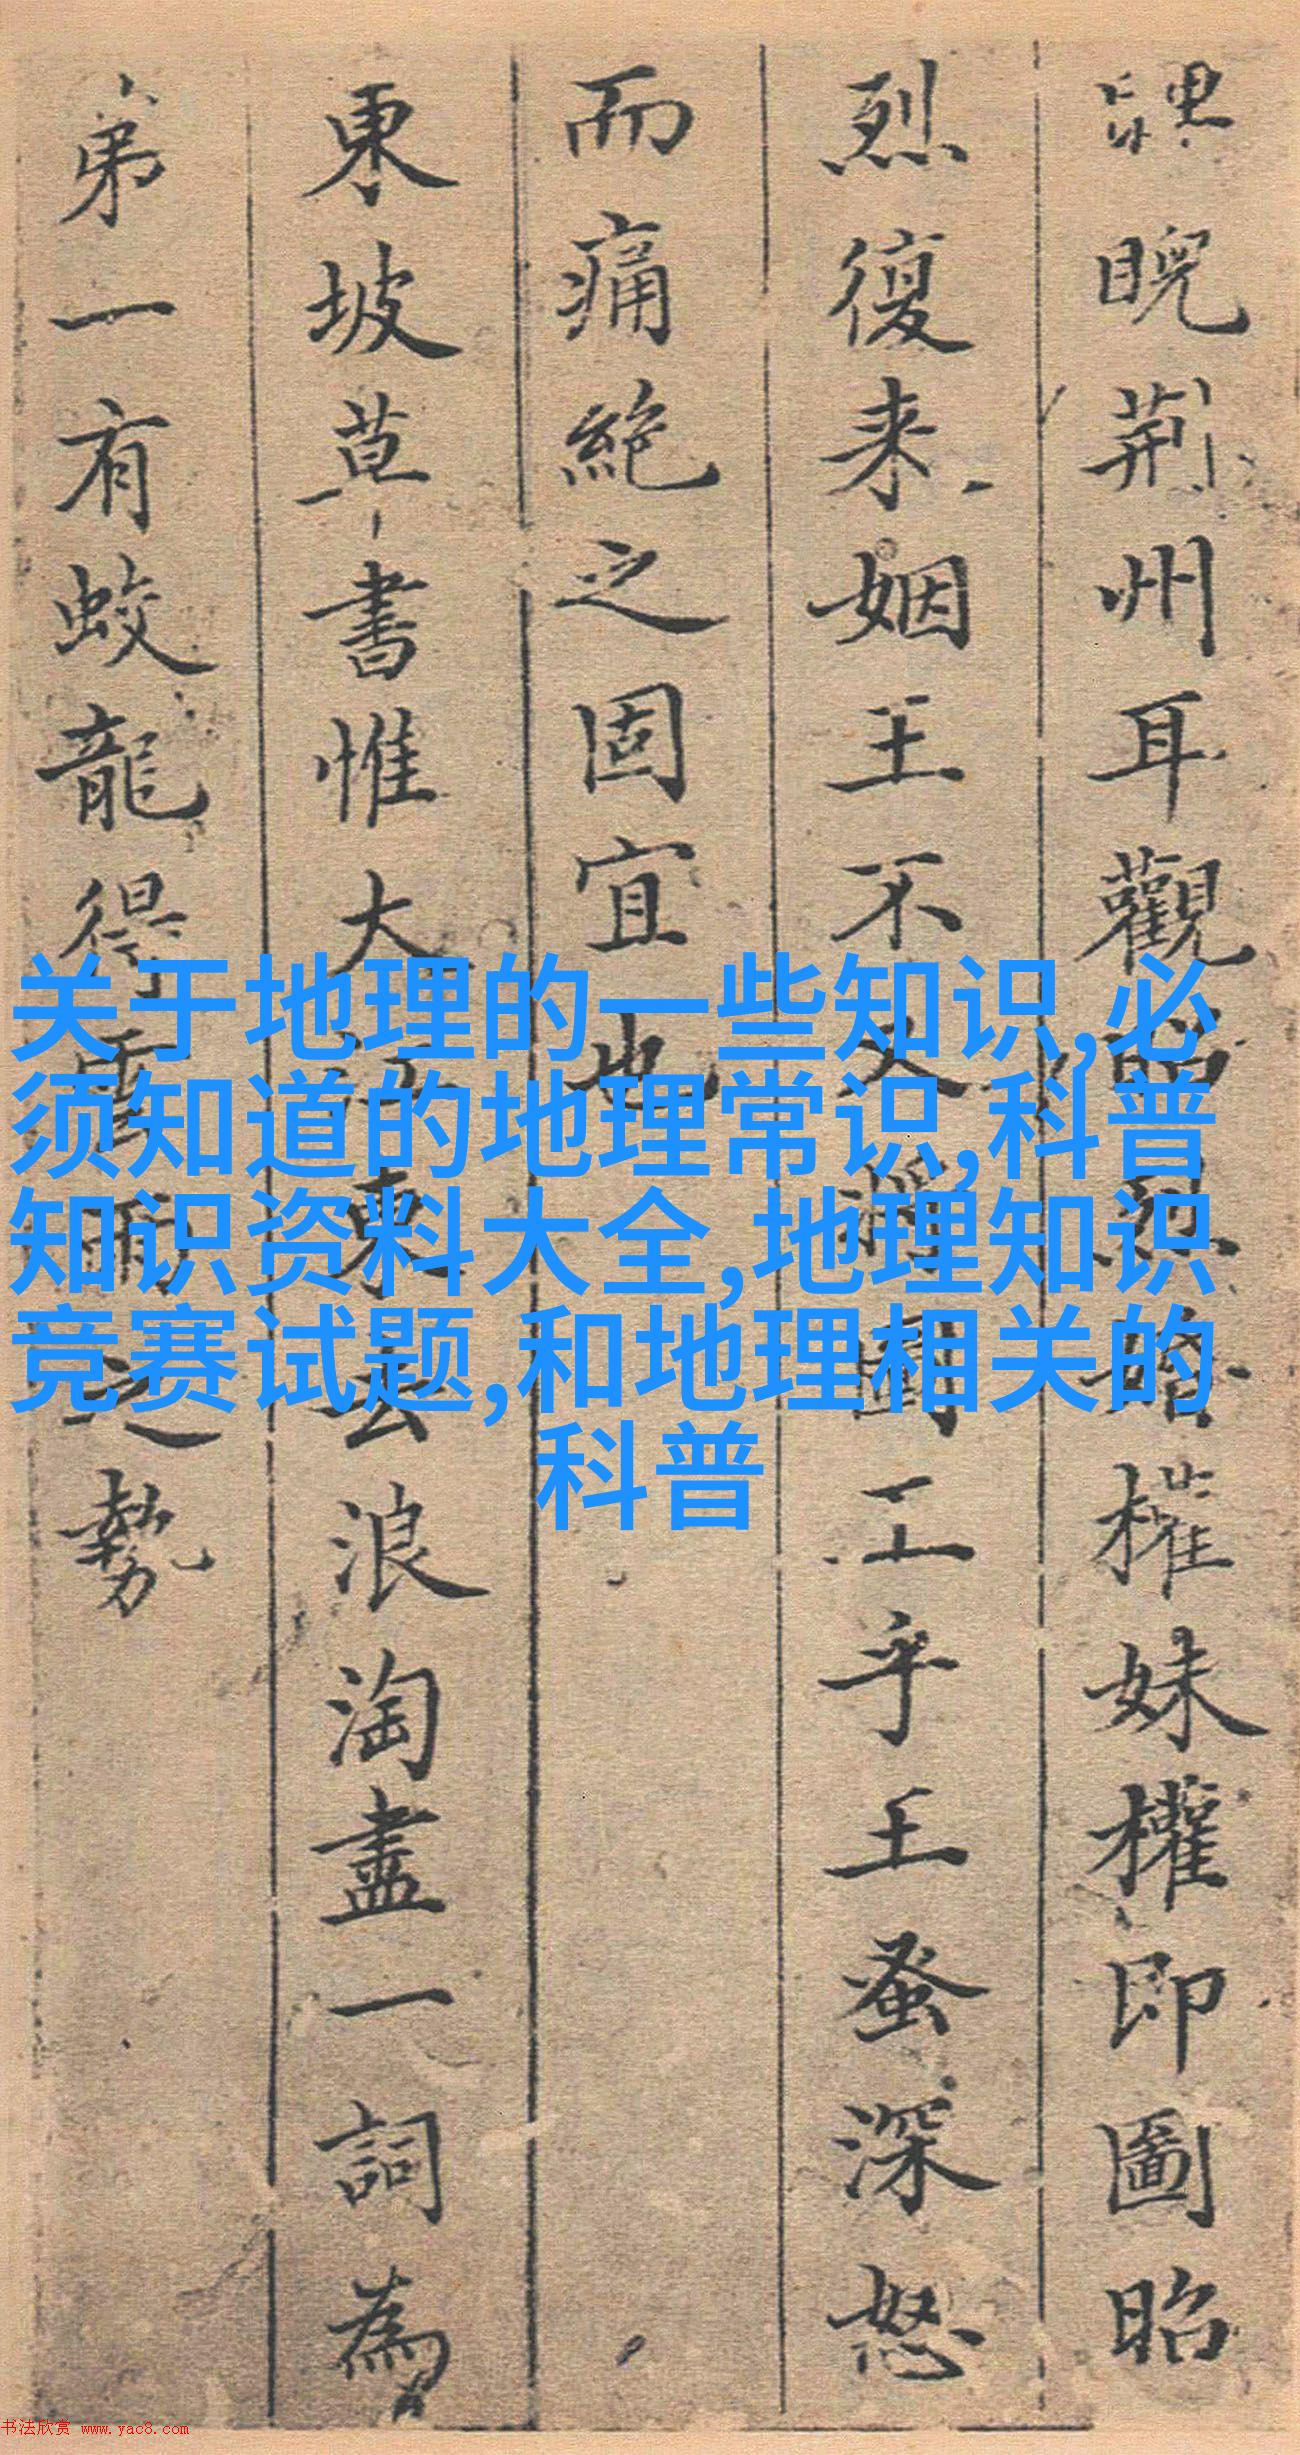 睨荊州耳觀昭烈婚權妹權即圖昭
烈復来姻王不又工乎王蚤深怒
而痛絶之固宜也
東坡草書惟大江東去浪淘盡一詞為
弟一有蛟龍得雲雨之勢
关于地理的一些知识,必
须知道的地理常识,科普
知识资料大全,地理知识
竞赛试题,和地理相关的
科普
书法欣赏 www.yac8.com